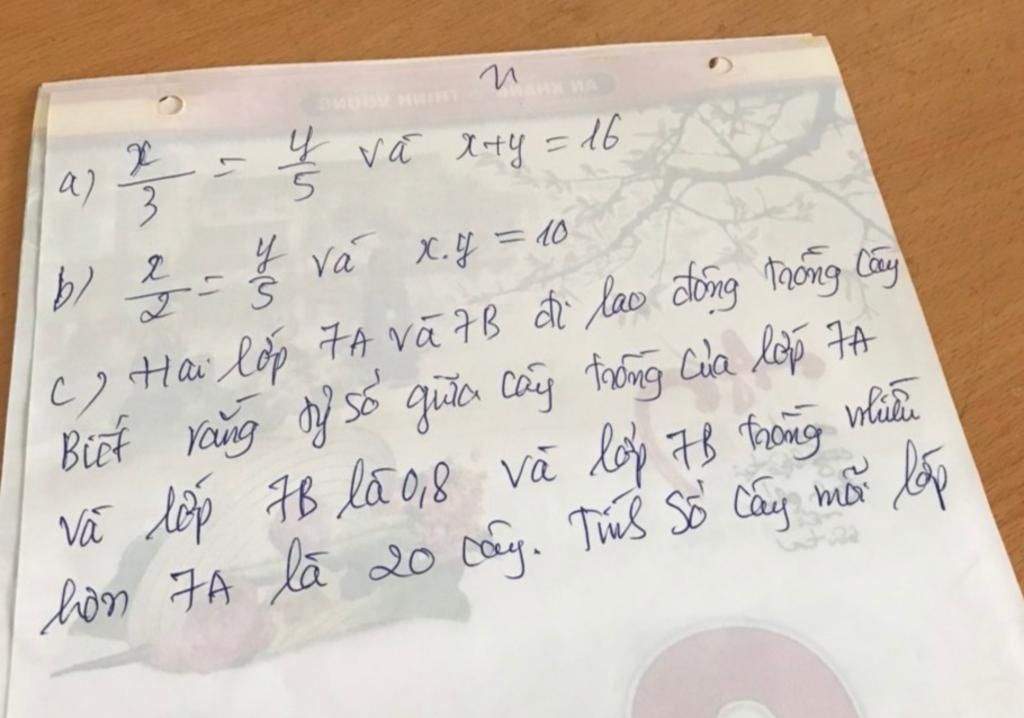 a) x/3 = y/5 và x+y = 16
b) x/2 = y/5 và x.y = 10
c, Hai lớp 7A và 7B đi lao động trồng cây
Biết rằng tỷ số giữa cây trồng của lớp 7A
và lớp 7B là 0,8 và lớp 7B trồng nhiều
hơn 7A là 20 cây. Tính số cây mỗi lớp